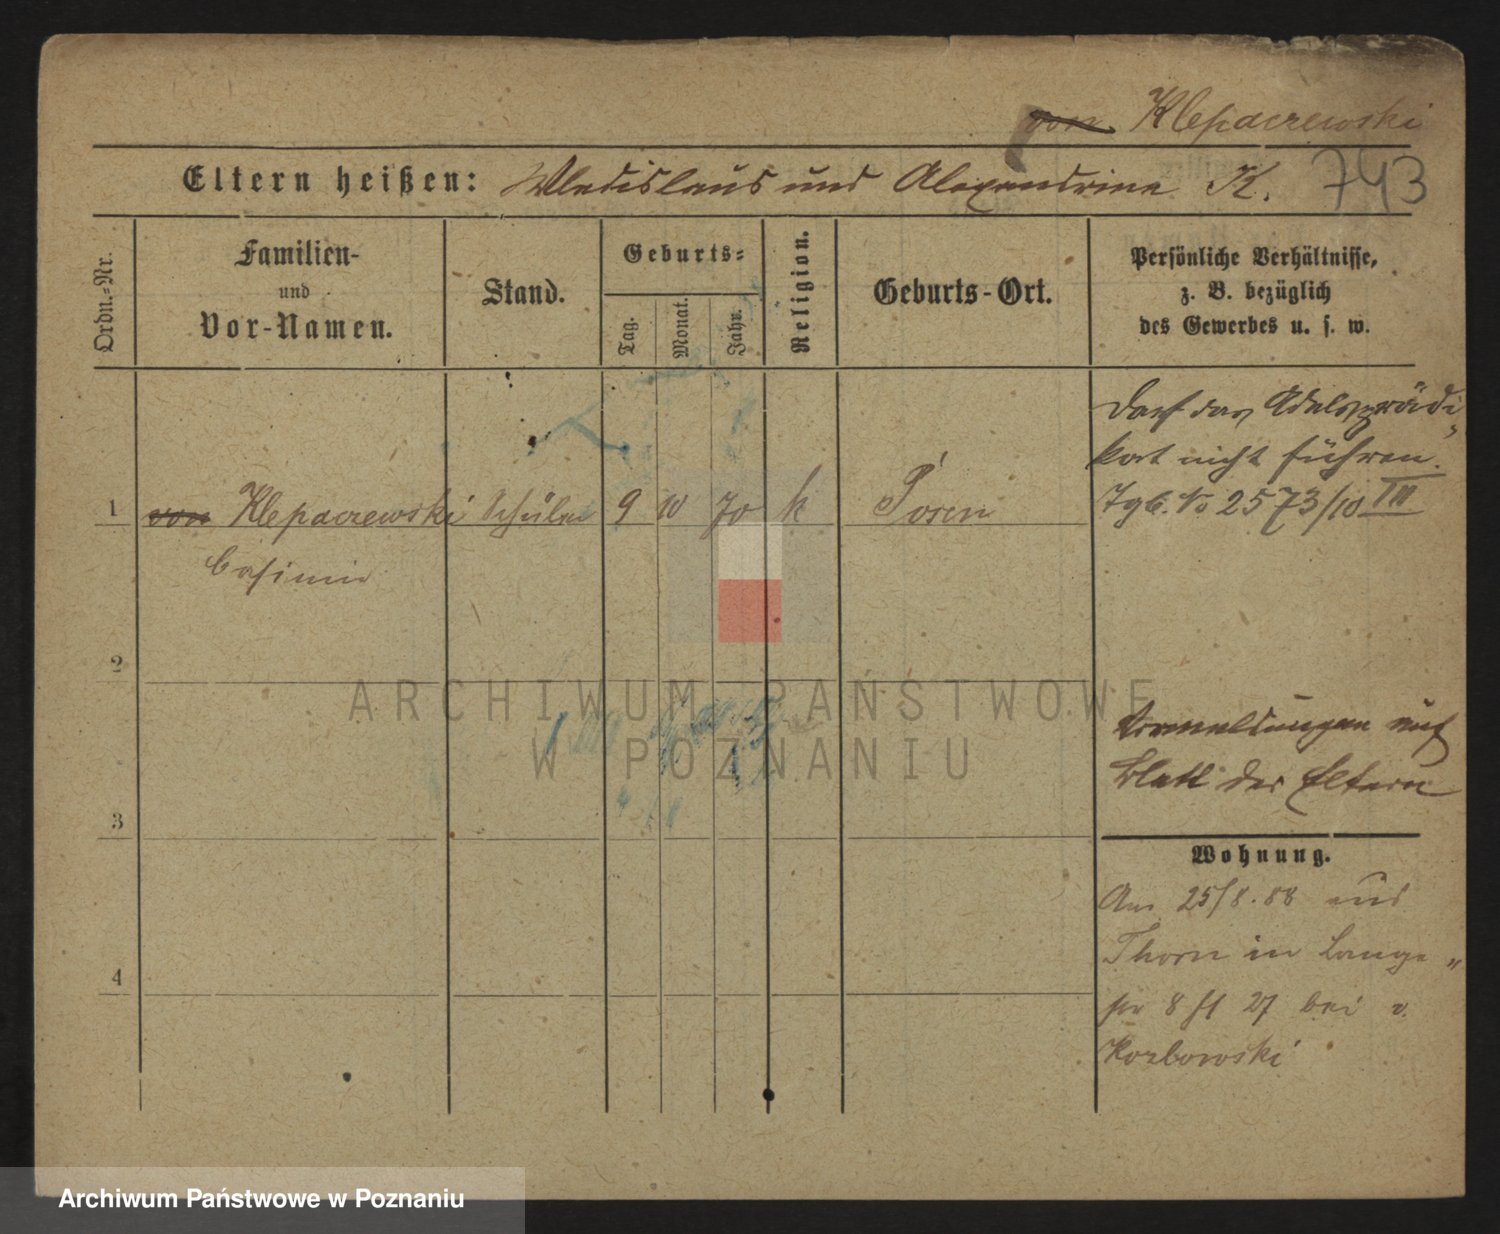 von Klepaczewski
Eltern heißen: Wladislaus und Alexandrine K. 743
Ordn.-Nr.
Familien-
und
Vor-Namen.
Stand.
Geburts-
Tag.
Monat.
Jahr.
Religion.
Geburts-Ort.
Persönliche Verhältnisse,
z. B. bezüglich
des Gewerbes u. s. w.
Darf das Adelsprädi-
kat nicht führen.
Tgb. No 2573/10 III
1 von Klepaczewski Schüler 9 10 70 k Posen
Casimir
2
ARCHIWUM PAŃSTWOWE
W POZNANIU
Anmeldungen auf
Blatt der Eltern
3
Wohnung.
Am 25/8. 88 aus
Thorn in Lange-
str 8 H 27 bei v.
Korbowski
4
Archiwum Państwowe w Poznaniu